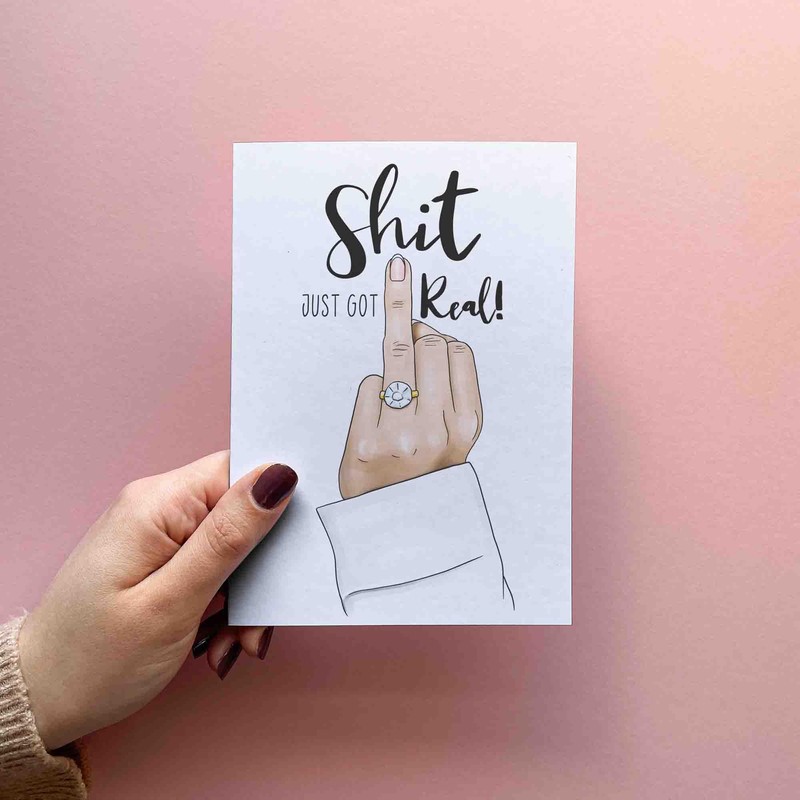 Shit
JUST GOT Real!